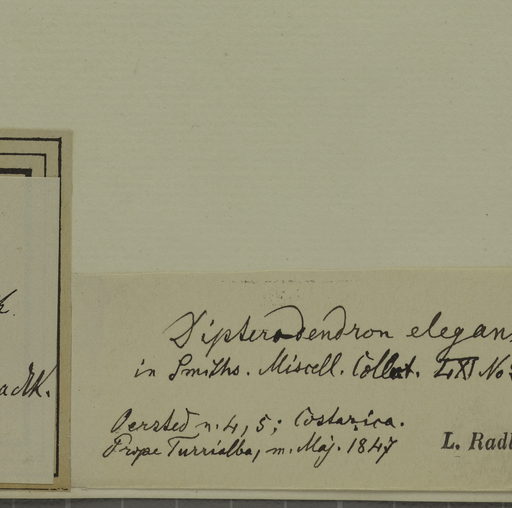 Dipterodendron elegans
in Smiths. Miscell. Collect. LXI No
Oersted n. 4, 5; Costarica.
Prope Turrialba, m. Maj. 1847
L. Radl